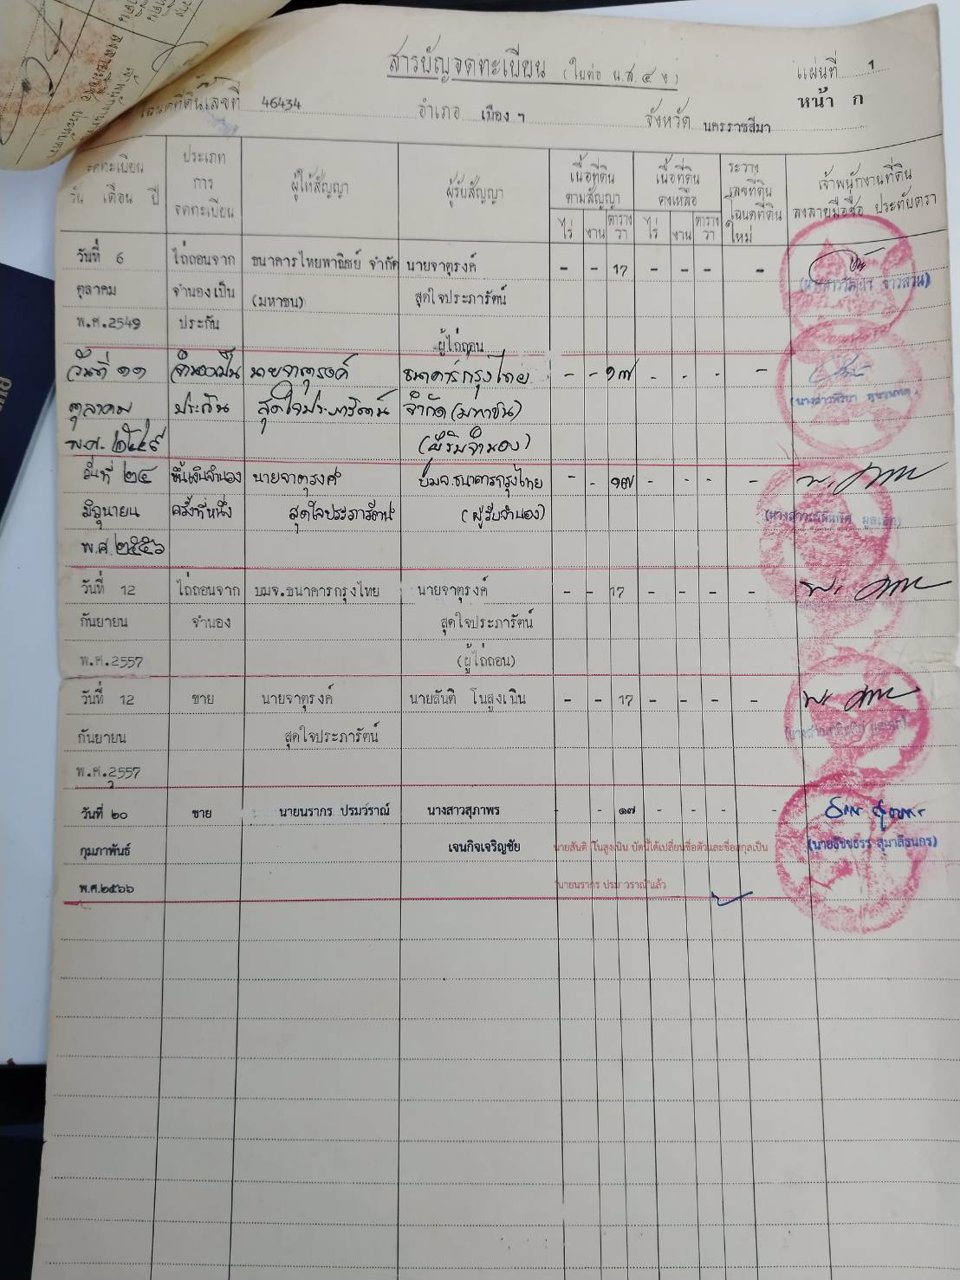 สารบัญจดทะเบียน (ใบต่อ น.ส.๔ จ)
แผ่นที่ 1
หน้า ก
โฉนดที่ดินเลขที่ 46434 อำเภอ เมือง ฯ จังหวัด นครราชสีมา
จดทะเบียน วัน เดือน ปี
ประเภทการจดทะเบียน
ผู้ให้สัญญา
ผู้รับสัญญา
เนื้อที่ดินตามสัญญา
ไร่ งาน ตารางวา
เนื้อที่ดินคงเหลือ
ไร่ งาน ตารางวา
ระวาง เลขที่ดิน โฉนดที่ดินใหม่
เจ้าพนักงานที่ดิน ลงลายมือชื่อ ประทับตรา
วันที่ 6 ไถ่ถอนจาก ธนาคารไทยพาณิชย์ จำกัด นายจาตุรงค์ - - 17 - - - -
ตุลาคม จำนองเป็น (มหาชน) สุดใจประภารัตน์
พ.ศ.2549 ประกัน
ผู้ไถ่ถอน
วันที่ ๑๑ จำนองเป็น นายจาตุรงค์ ธนาคารกรุงไทย - - ๑๗ - - - -
ตุลาคม ประกัน สุดใจประภารัตน์ จำกัด (มหาชน)
พ.ศ. ๒๕๔๙ (ผู้รับจำนอง)
วันที่ ๒๔ ขึ้นเงินจำนอง นายจาตุรงค์ บมจ.ธนาคารกรุงไทย - - ๑๗ - - - -
มิถุนายน ครั้งที่หนึ่ง สุดใจประภารัตน์ (ผู้รับจำนอง)
พ.ศ. ๒๕๕๖
วันที่ 12 ไถ่ถอนจาก บมจ.ธนาคารกรุงไทย นายจาตุรงค์ - - 17 - - - -
กันยายน จำนอง สุดใจประภารัตน์
พ.ศ.2557 (ผู้ไถ่ถอน)
วันที่ 12 ขาย นายจาตุรงค์ นายสันติ โนสูงเนิน - - 17 - - - -
กันยายน สุดใจประภารัตน์
พ.ศ.2557
วันที่ ๒๐ ขาย นายนรากร ปรมวราณ์ นางสาวสุภาพร - - ๑๗ - - - -
กุมภาพันธ์ เจนกิจเจริญชัย นายสันติ โนสูงเนิน บัดนี้ได้เปลี่ยนชื่อตัวและชื่อสกุลเป็น
พ.ศ.๒๕๖๖ "นายนรากร ปรมวราณ์"แล้ว